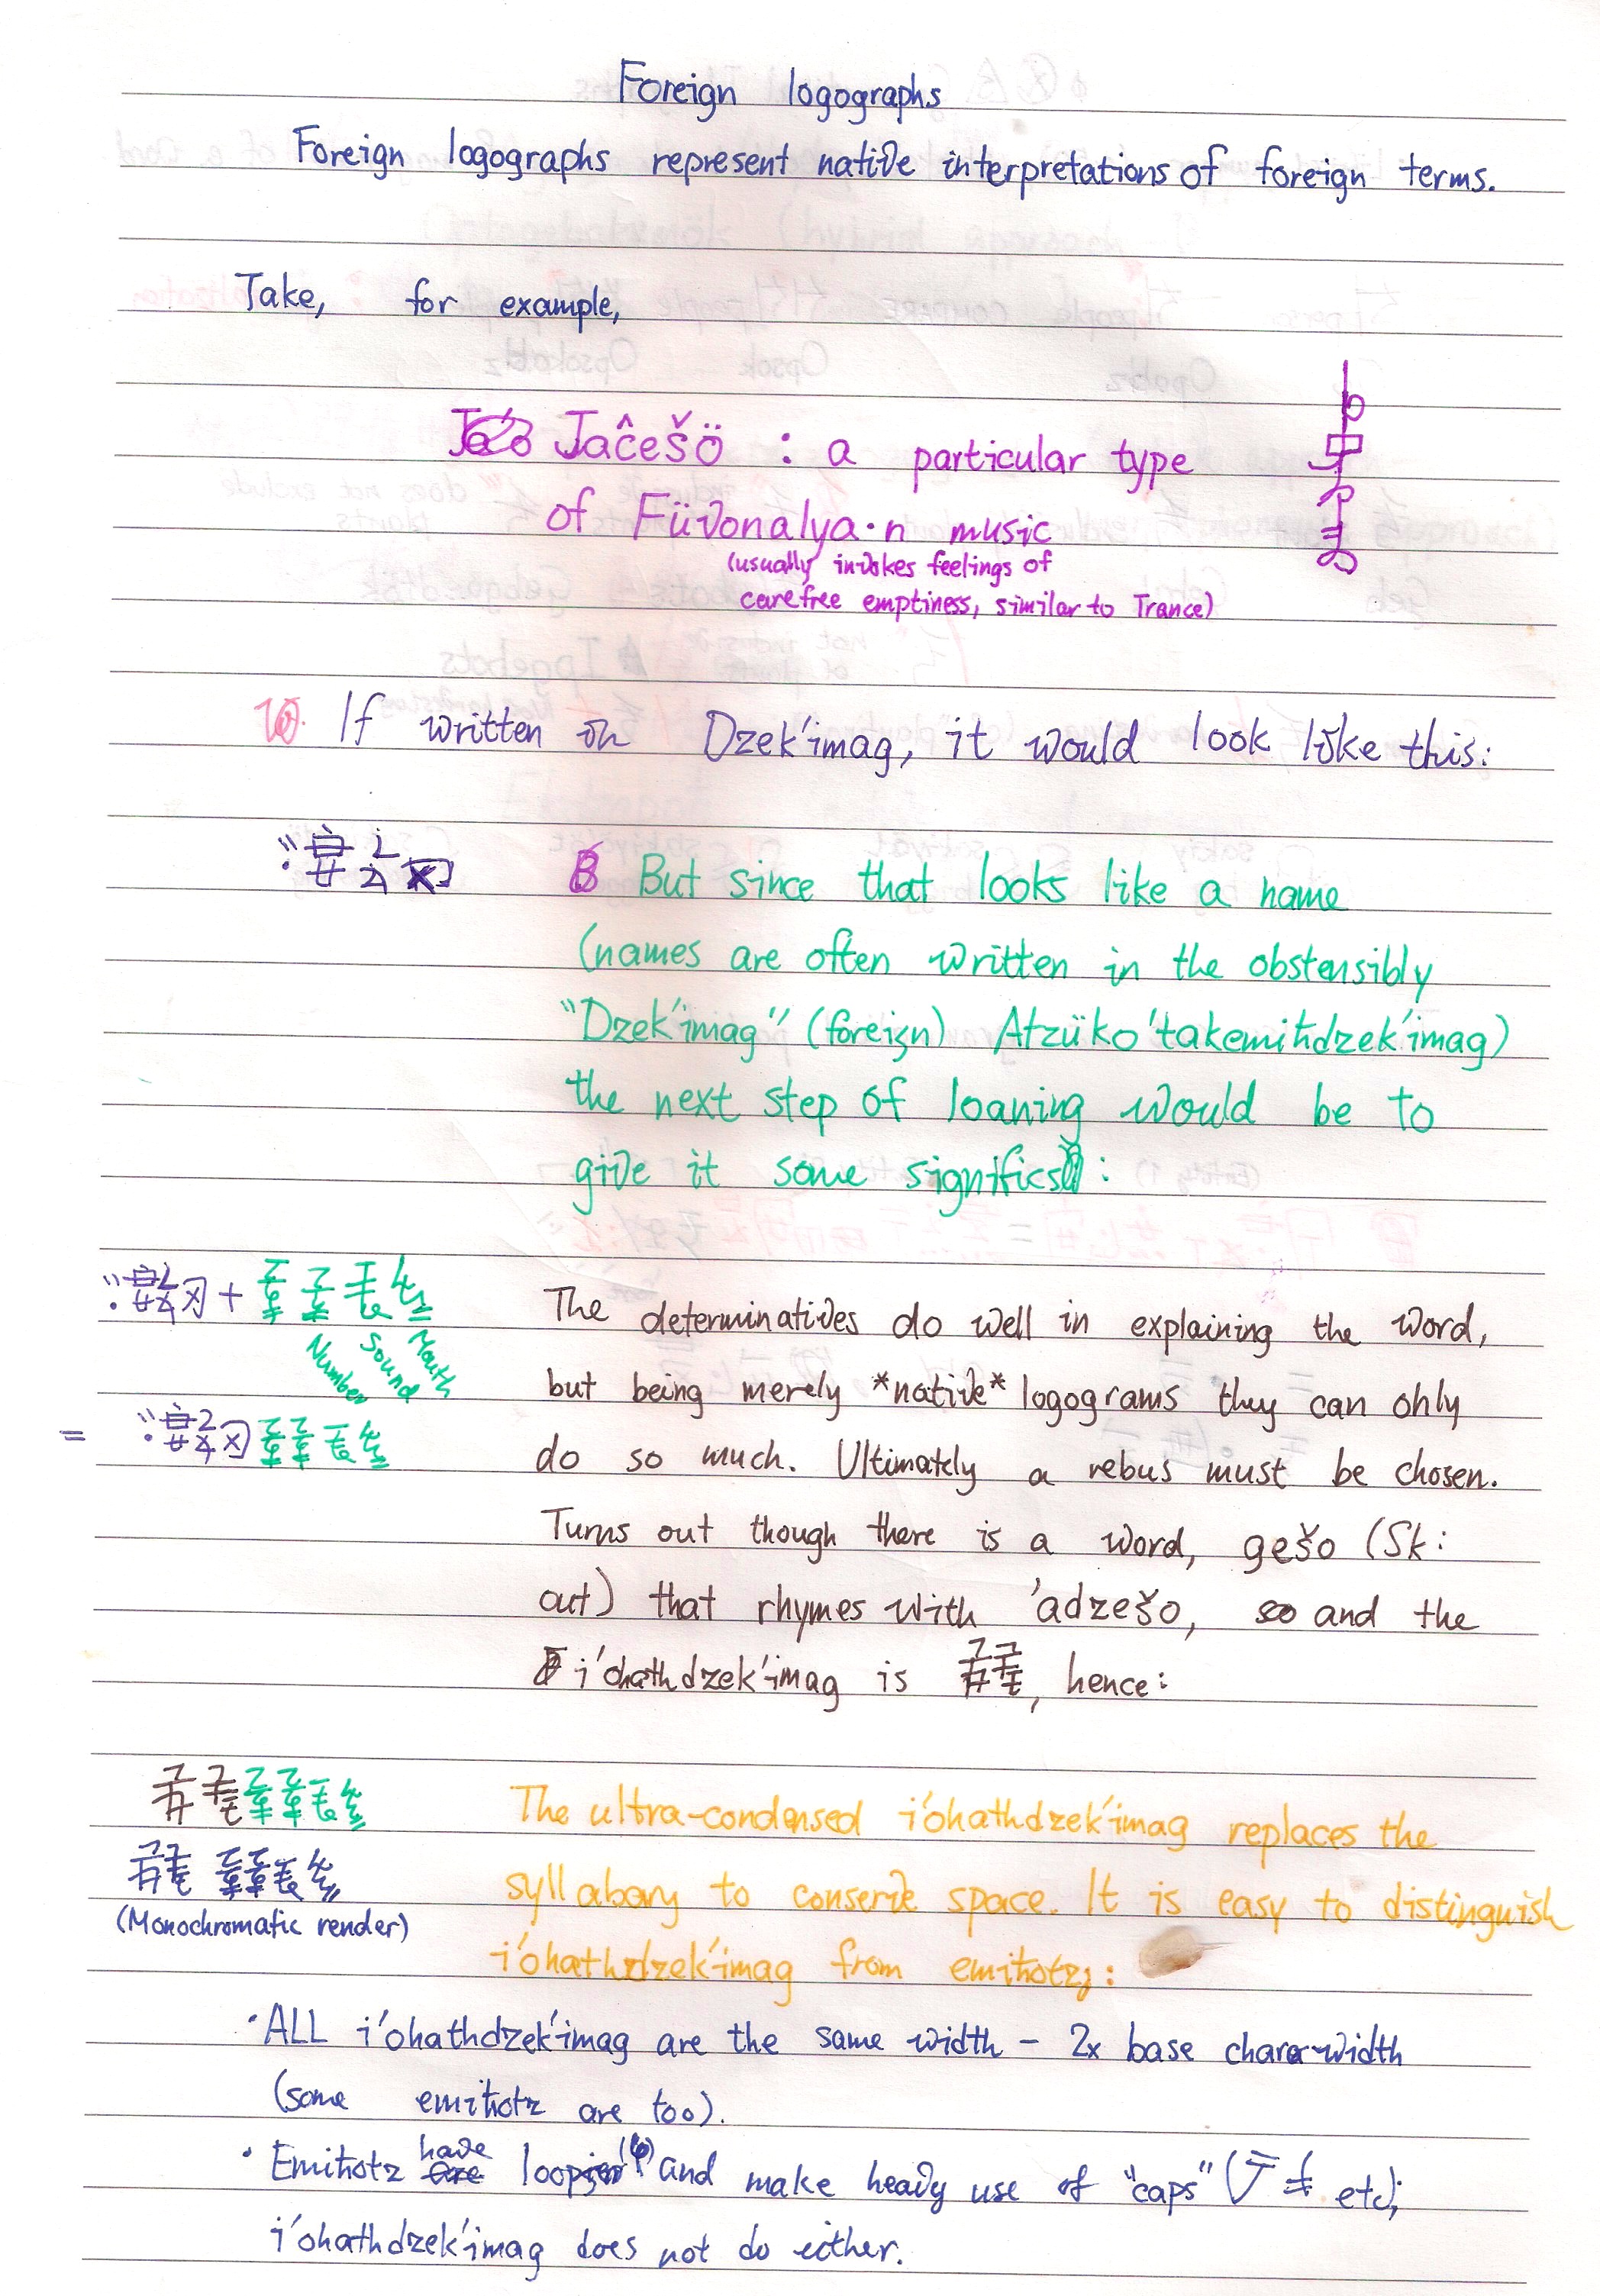 Foreign logographs
Foreign logographs represent native interpretations of foreign terms.
Take, for example,
Jaĉešö : a particular type
of Füvonalya·n music
(usually invokes feelings of
carefree emptiness, similar to Trance)
If written in Dzek'imag, it would look like this:
But since that looks like a name
(names are often written in the obstensibly
"Dzek'imag" (foreign) Atzüko'takemihdzek'imag)
the next step of loaning would be to
give it some significs:
+
Number Sound Mouth
=
The determinatives do well in explaining the word,
but being merely *native* logograms they can only
do so much. Ultimately a rebus must be chosen.
Turns out though there is a word, gešo (Sk:
out) that rhymes with 'adzešo, and the
i'ohathdzek'imag is , hence:
The ultra-condensed i'ohathdzek'imag replaces the
syllabary to conserve space. It is easy to distinguish
(Monochromatic render)
i'ohathdzek'imag from emihotz:
·ALL i'ohathdzek'imag are the same width - 2x base charawidth
(some emihotz are too).
· Emihotz have and make heavy use of "caps" ( etc);
i'ohathdzek'imag does not do either.